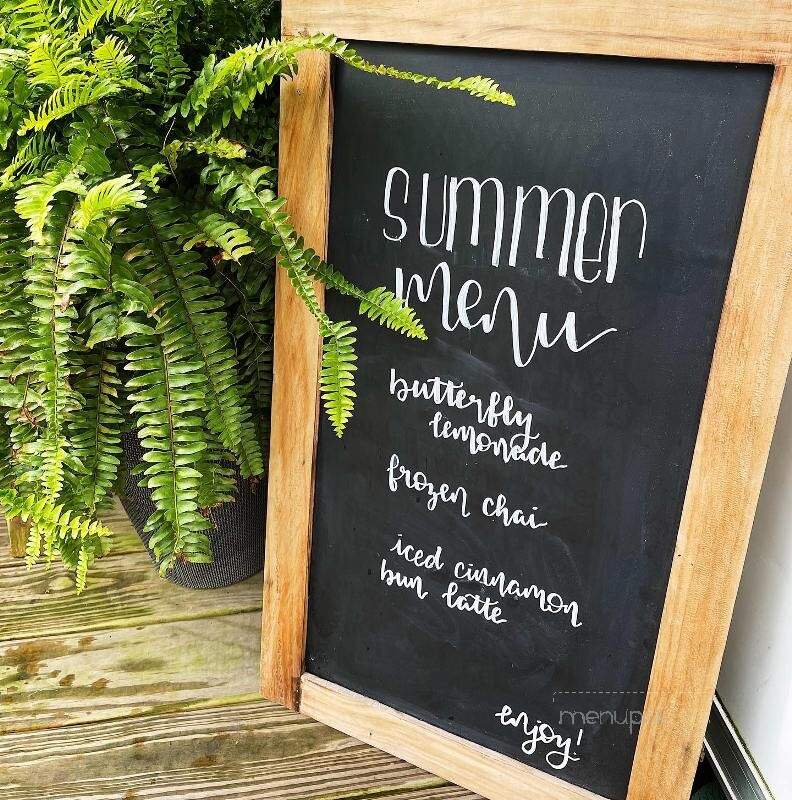 summer
menu
butterfly
lemonade
frozen chai
iced cinnamon
bun latte
enjoy!